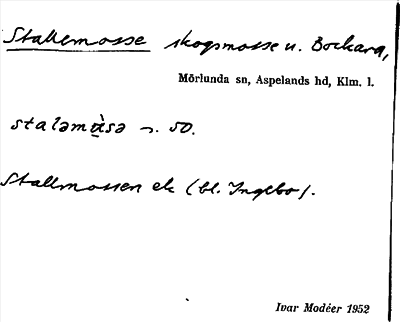 Stallemosse skogsmosse u. Bockara,
Mörlunda sn, Aspelands hd, Klm. l.
staləmås̀ə ⁊. 50.
Stallmossen ek (bl. Ingebo).
Ivar Modéer 1952